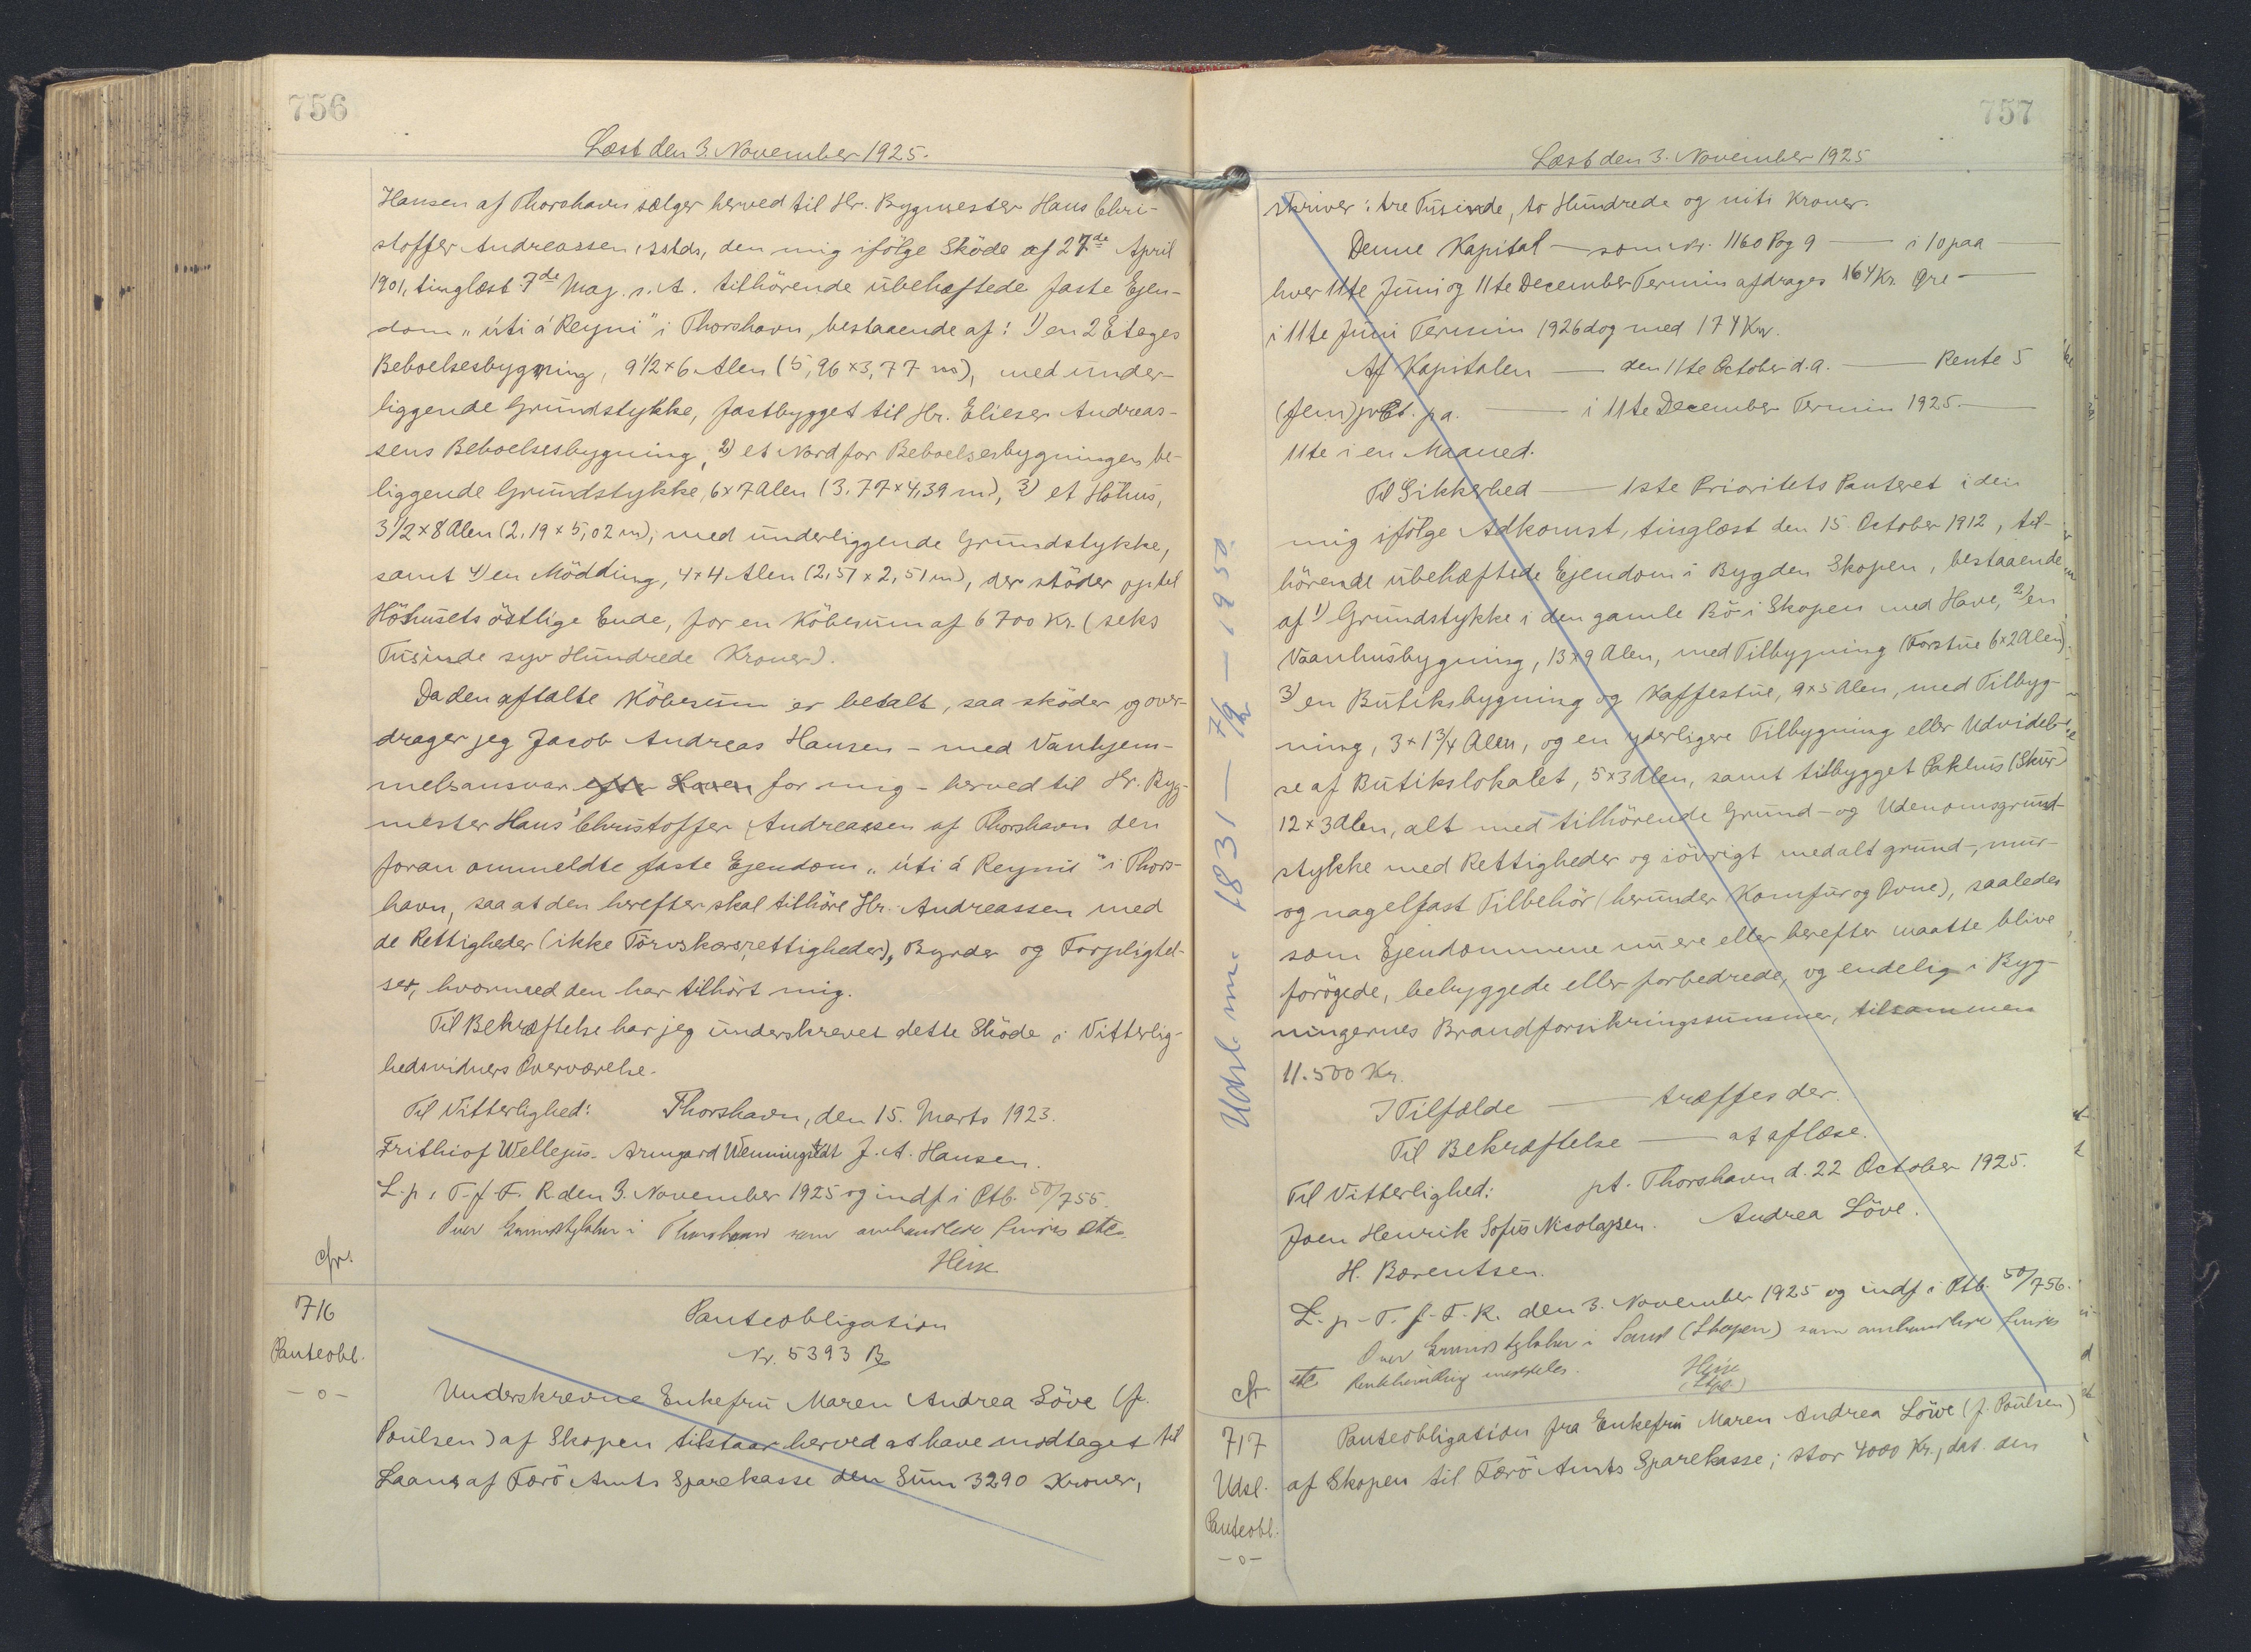 756
Læst den 3. November 1925.
Hansen af Thorshavn sælger herved til Hr. Bygmester Hans Chri-
stoffer Andreassen, sstds, den mig ifölge Sköde af 27de April
1901, tinglæst 7de Maj s. A. tilhörende ubehæftede faste Ejen-
dom „úti á Reyni" i Thorshavn, bestaaende af: 1) en 2 Etages
Beboelsesbygning, 9 1/2 x 6 Alen (5,96 x 3,77 m), med under-
liggende Grundstykke, fastbygget til Hr. Elieser Andreas-
sens Beboelsesbygning, 2) et Nord for Beboelsesbygningen be-
liggende Grundstykke, 6 x 7 Alen (3.77 x 4,39 m), 3) et Höhus,
3 1/2 x 8 Alen (2,19 x 5,02 m), med underliggende Grundstykke,
samt 4) en Mödding, 4 x 4 Alen (2,51 x 2,51 m), der stöder op til
Höhusets östlige Ende, for en Köbesum af 6700 Kr. (seks
Tusinde syv Hundrede Kroner).
Da den aftalte Köbesum er betalt, saa sköder og over-
drager jeg Jacob Andreas Hansen – med Vanhjem-
melsansvar efter Loven for mig – herved til Hr. Byg-
mester Hans Christoffer Andreassen af Thorshavn den
foran ommeldte faste Ejendom „úti á Reyni" i Thors-
havn, saa at den herefter skal tilhöre Hr. Andreassen med
de Rettigheder (ikke Törvskærsrettigheder), Byrder og Forpligtel-
ser, hvormed den har tilhört mig.
Til Bekræftelse har jeg underskrevet dette Sköde i Vitterlig-
hedsvidners Overværelse.
Til Vitterlighed: Thorshavn, den 15. Marts 1923.
Frithiof Wellejus. Armgard Wenningstedt J. A. Hansen.
L. p. T. f. F. R. den 3. November 1925 og indf i Ptb. 50/755.
Over Grundstykker i Thorshavn som omhandlede findes
cfr.
716
Panteobl.
– o –
Panteobligation
Nr. 5393 B
Underskrevne Enkefru Maren Andrea Löve (f.
Poulsen) af Skopen tilstaar herved at have modtaget til
Laans af Færö Amts Sparekasse den Sum 3290 Kroner,
757
Læst den 3. November 1925
skriver: tre Tusinde, to Hundrede og niti Kroner.
Denne Kapital — som Nr. 1160 Pog 9 — i 10 paa —
hver 11te Juni og 11te December Termin afdrages 164 Kr. Øre —
i 11te Juni Termin 1926 dog med 174 Kr.
Af Kapitalen — den 11te October d. A. — Rente 5
(fem) pCt. p a. — i 11te December Termin 1925. —
11te i en Maaned.
Til Sikkerhed — 1ste Prioritets Panteret i den
mig ifölge Adkomst, tinglæst den 15. October 1912, til-
hörende ubehæftede Ejendom i Bygden Skopen, bestaaende
af 1) Grundstykke i den gamle Bö i Skopen med Have, 2) en
Vaanhusbygning, 13 x 9 Alen, med Tilbygning (Forstue 6 x 2 Alen)
3) en Butiksbygning og Kaffestue, 9 x 5 Alen, med Tilbyg-
ning, 3 x 1 3/4 Alen, og en yderligere Tilbygning eller Udvidel-
se af Butikslokalet, 5 x 3 Alen, samt tilbygget Pakhus (Skur)
12 x 3 Alen, alt med tilhörende Grund- og Udenomsgrund-
stykke med Rettigheder og iövrigt med alt grund-, mur-
og nagelfast Tilbehör (herunder Komfur og Ovne), saaledes
som Ejendommene nu ere eller herefter maatte blive
forögede, bebyggede eller forbedrede, og endelig i Byg-
ningernes Brandforsikringssummer, tilsammen
11.500 Kr.
I Tilfælde — træffes der.
Til Bekræftelse — at aflæse.
Til Vitterlighed: pt. Thorshavn d. 22 October 1925.
Joen Henrik Sofus Nicolajsen. Andrea Löve.
H. Bærentsen.
L. p. T. f. F. R. den 3. November 1925 og indf i Ptb. 50/756.
Over Grundstykker i Sand (Skopen) som omhandlede findes
cfr
Udsl. 1831 — 7/9 — 1950
717
Udsl.
Panteobl.
– o –
Panteobligation fra Enkefru Maren Andrea Löwe (f. Poulsen)
af Skopen til Færö Amts Sparekasse; stor 4000 Kr., dat. den